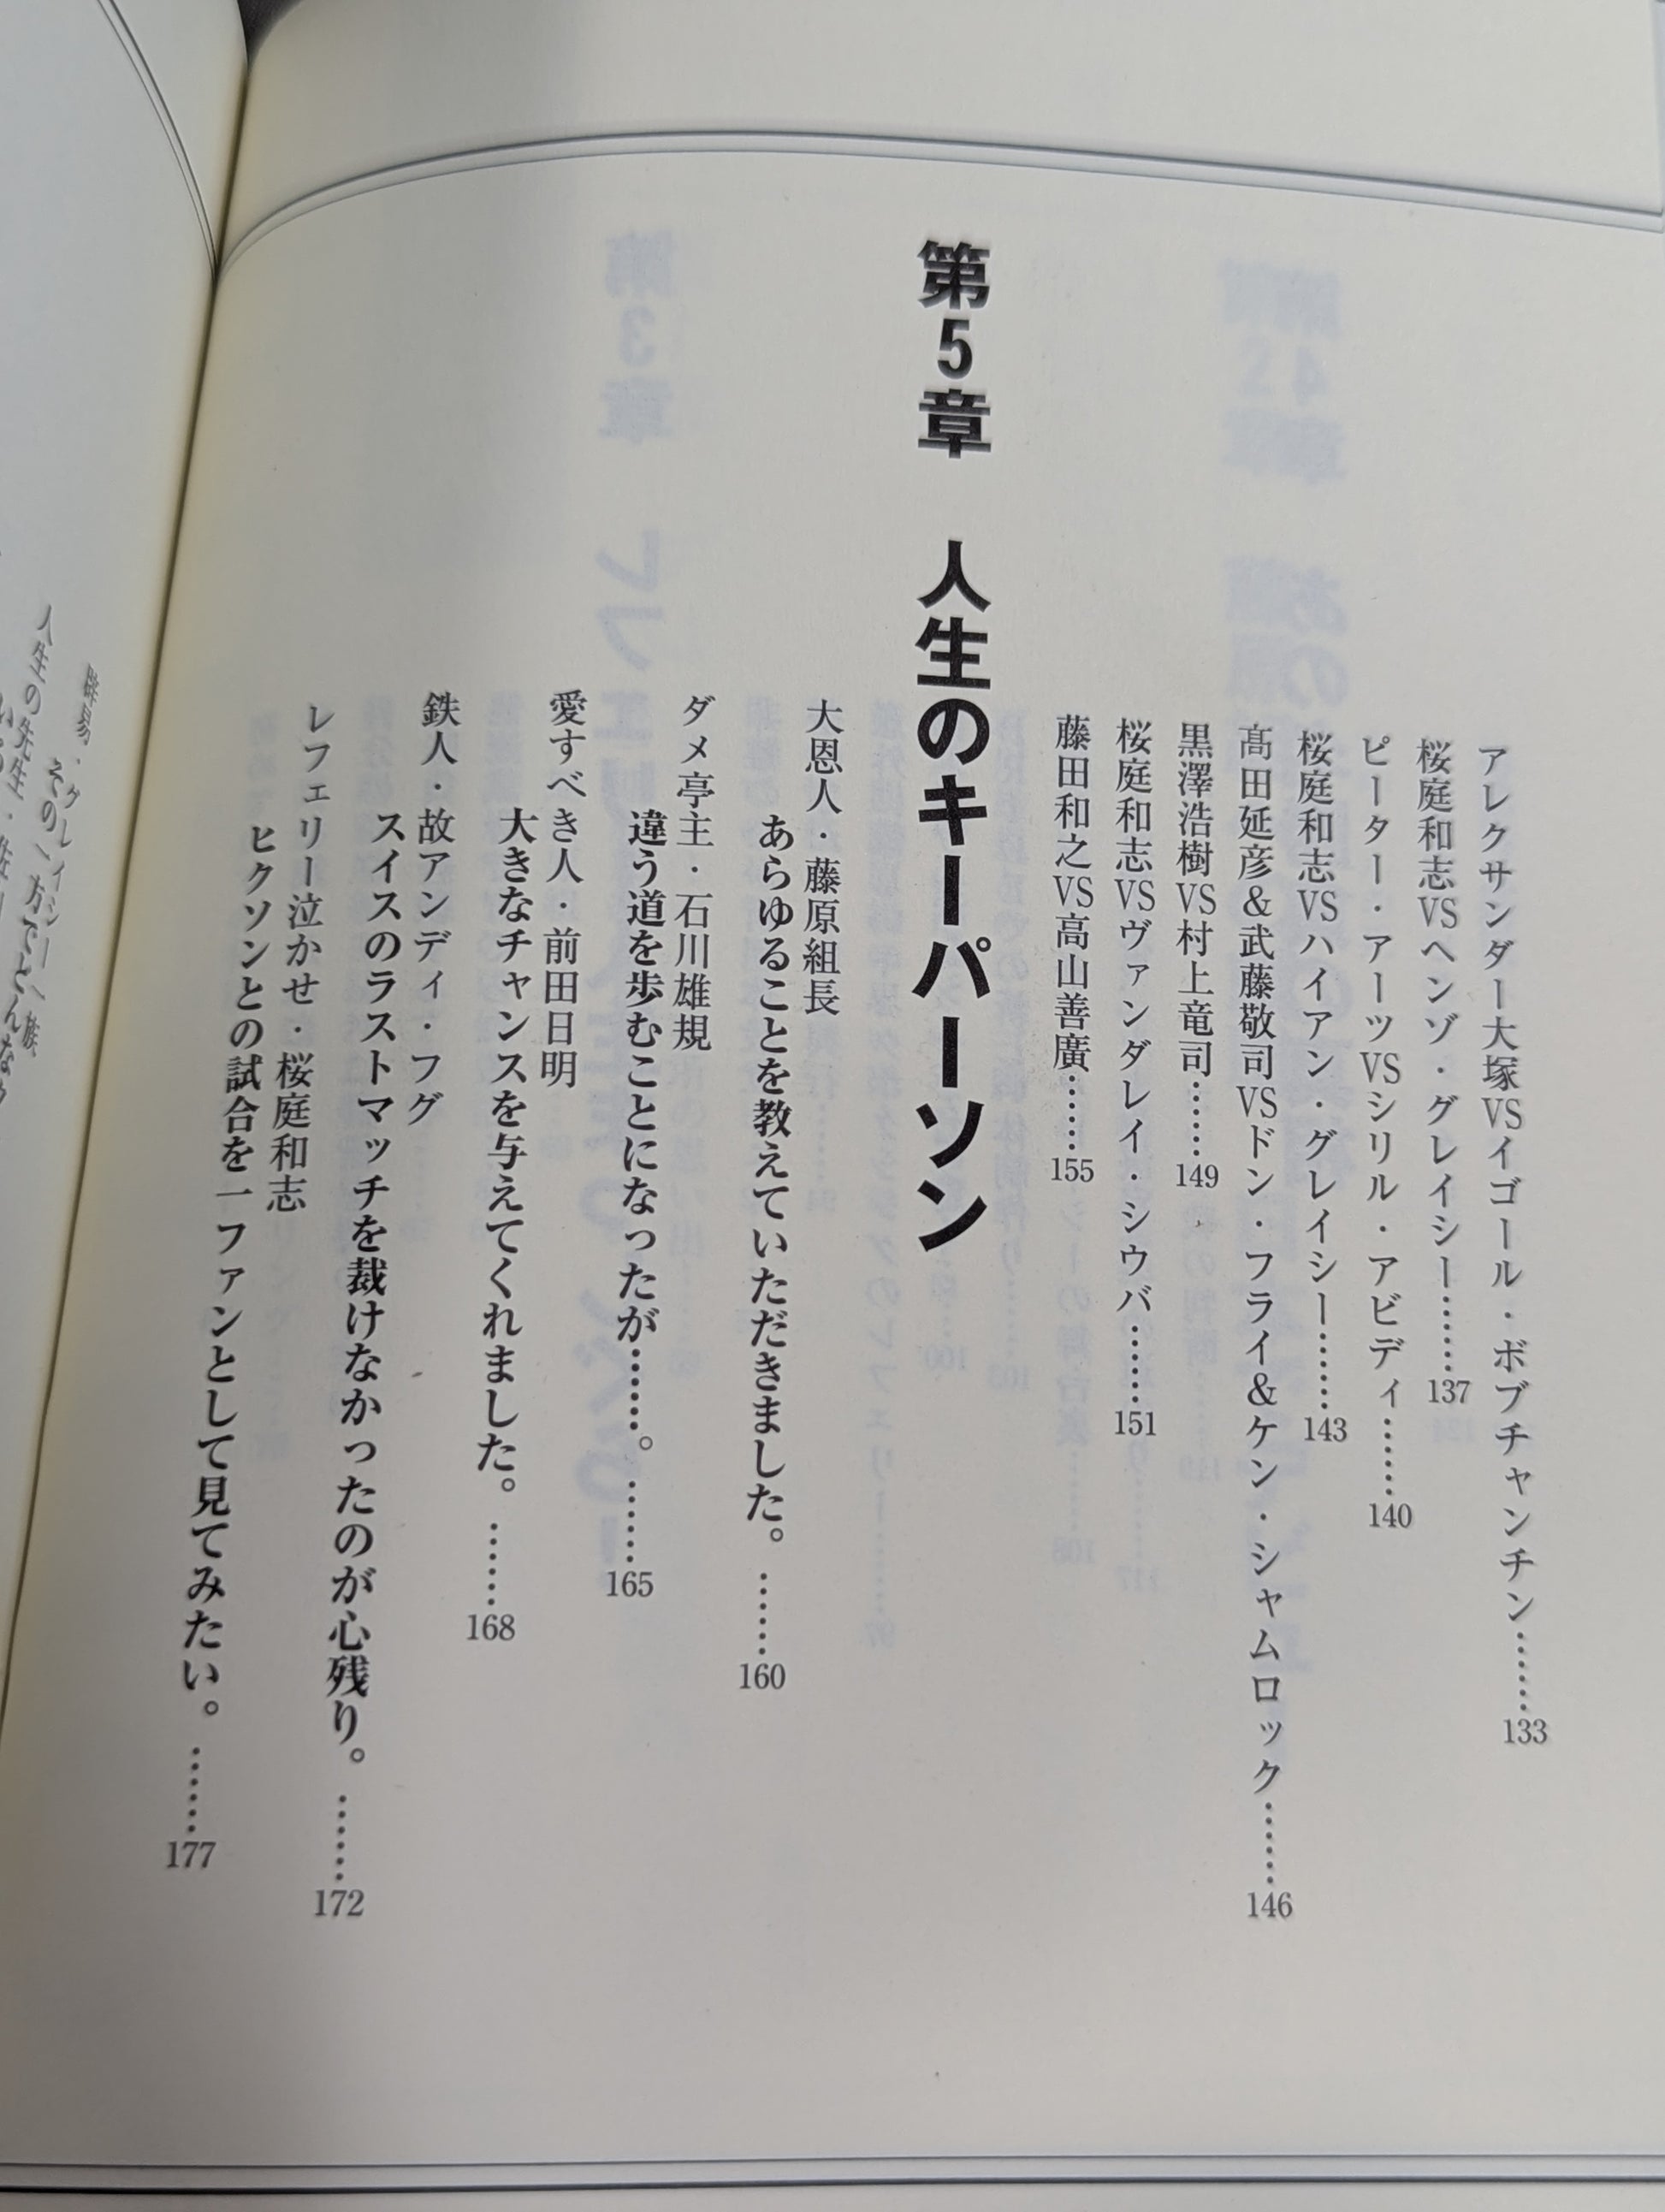 アレクサンダー大塚VSイゴール・ボブチャンチン……133
桜庭和志VSヘンゾ・グレイシー……137
ピーター・アーツVSシリル・アビディ……140
桜庭和志VSハイアン・グレイシー……143
髙田延彦&武藤敬司VSドン・フライ&ケン・シャムロック……146
黒澤浩樹VS村上竜司……149
桜庭和志VSヴァンダレイ・シウバ……151
藤田和之VS高山善廣……155
第5章　人生のキーパーソン
大恩人・藤原組長
あらゆることを教えていただきました。……160
ダメ亭主・石川雄規
違う道を歩むことになったが……。……165
愛すべき人・前田日明
大きなチャンスを与えてくれました。……168
鉄人・故アンディ・フグ
スイスのラストマッチを裁けなかったのが心残り。……172
レフェリー泣かせ・桜庭和志
ヒクソンとの試合を一ファンとして見てみたい。……177